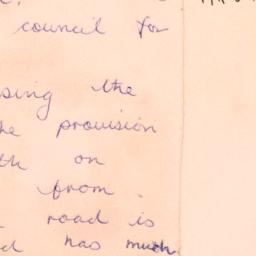 council for
sing the
he provision
th on
from.
road is
d has much